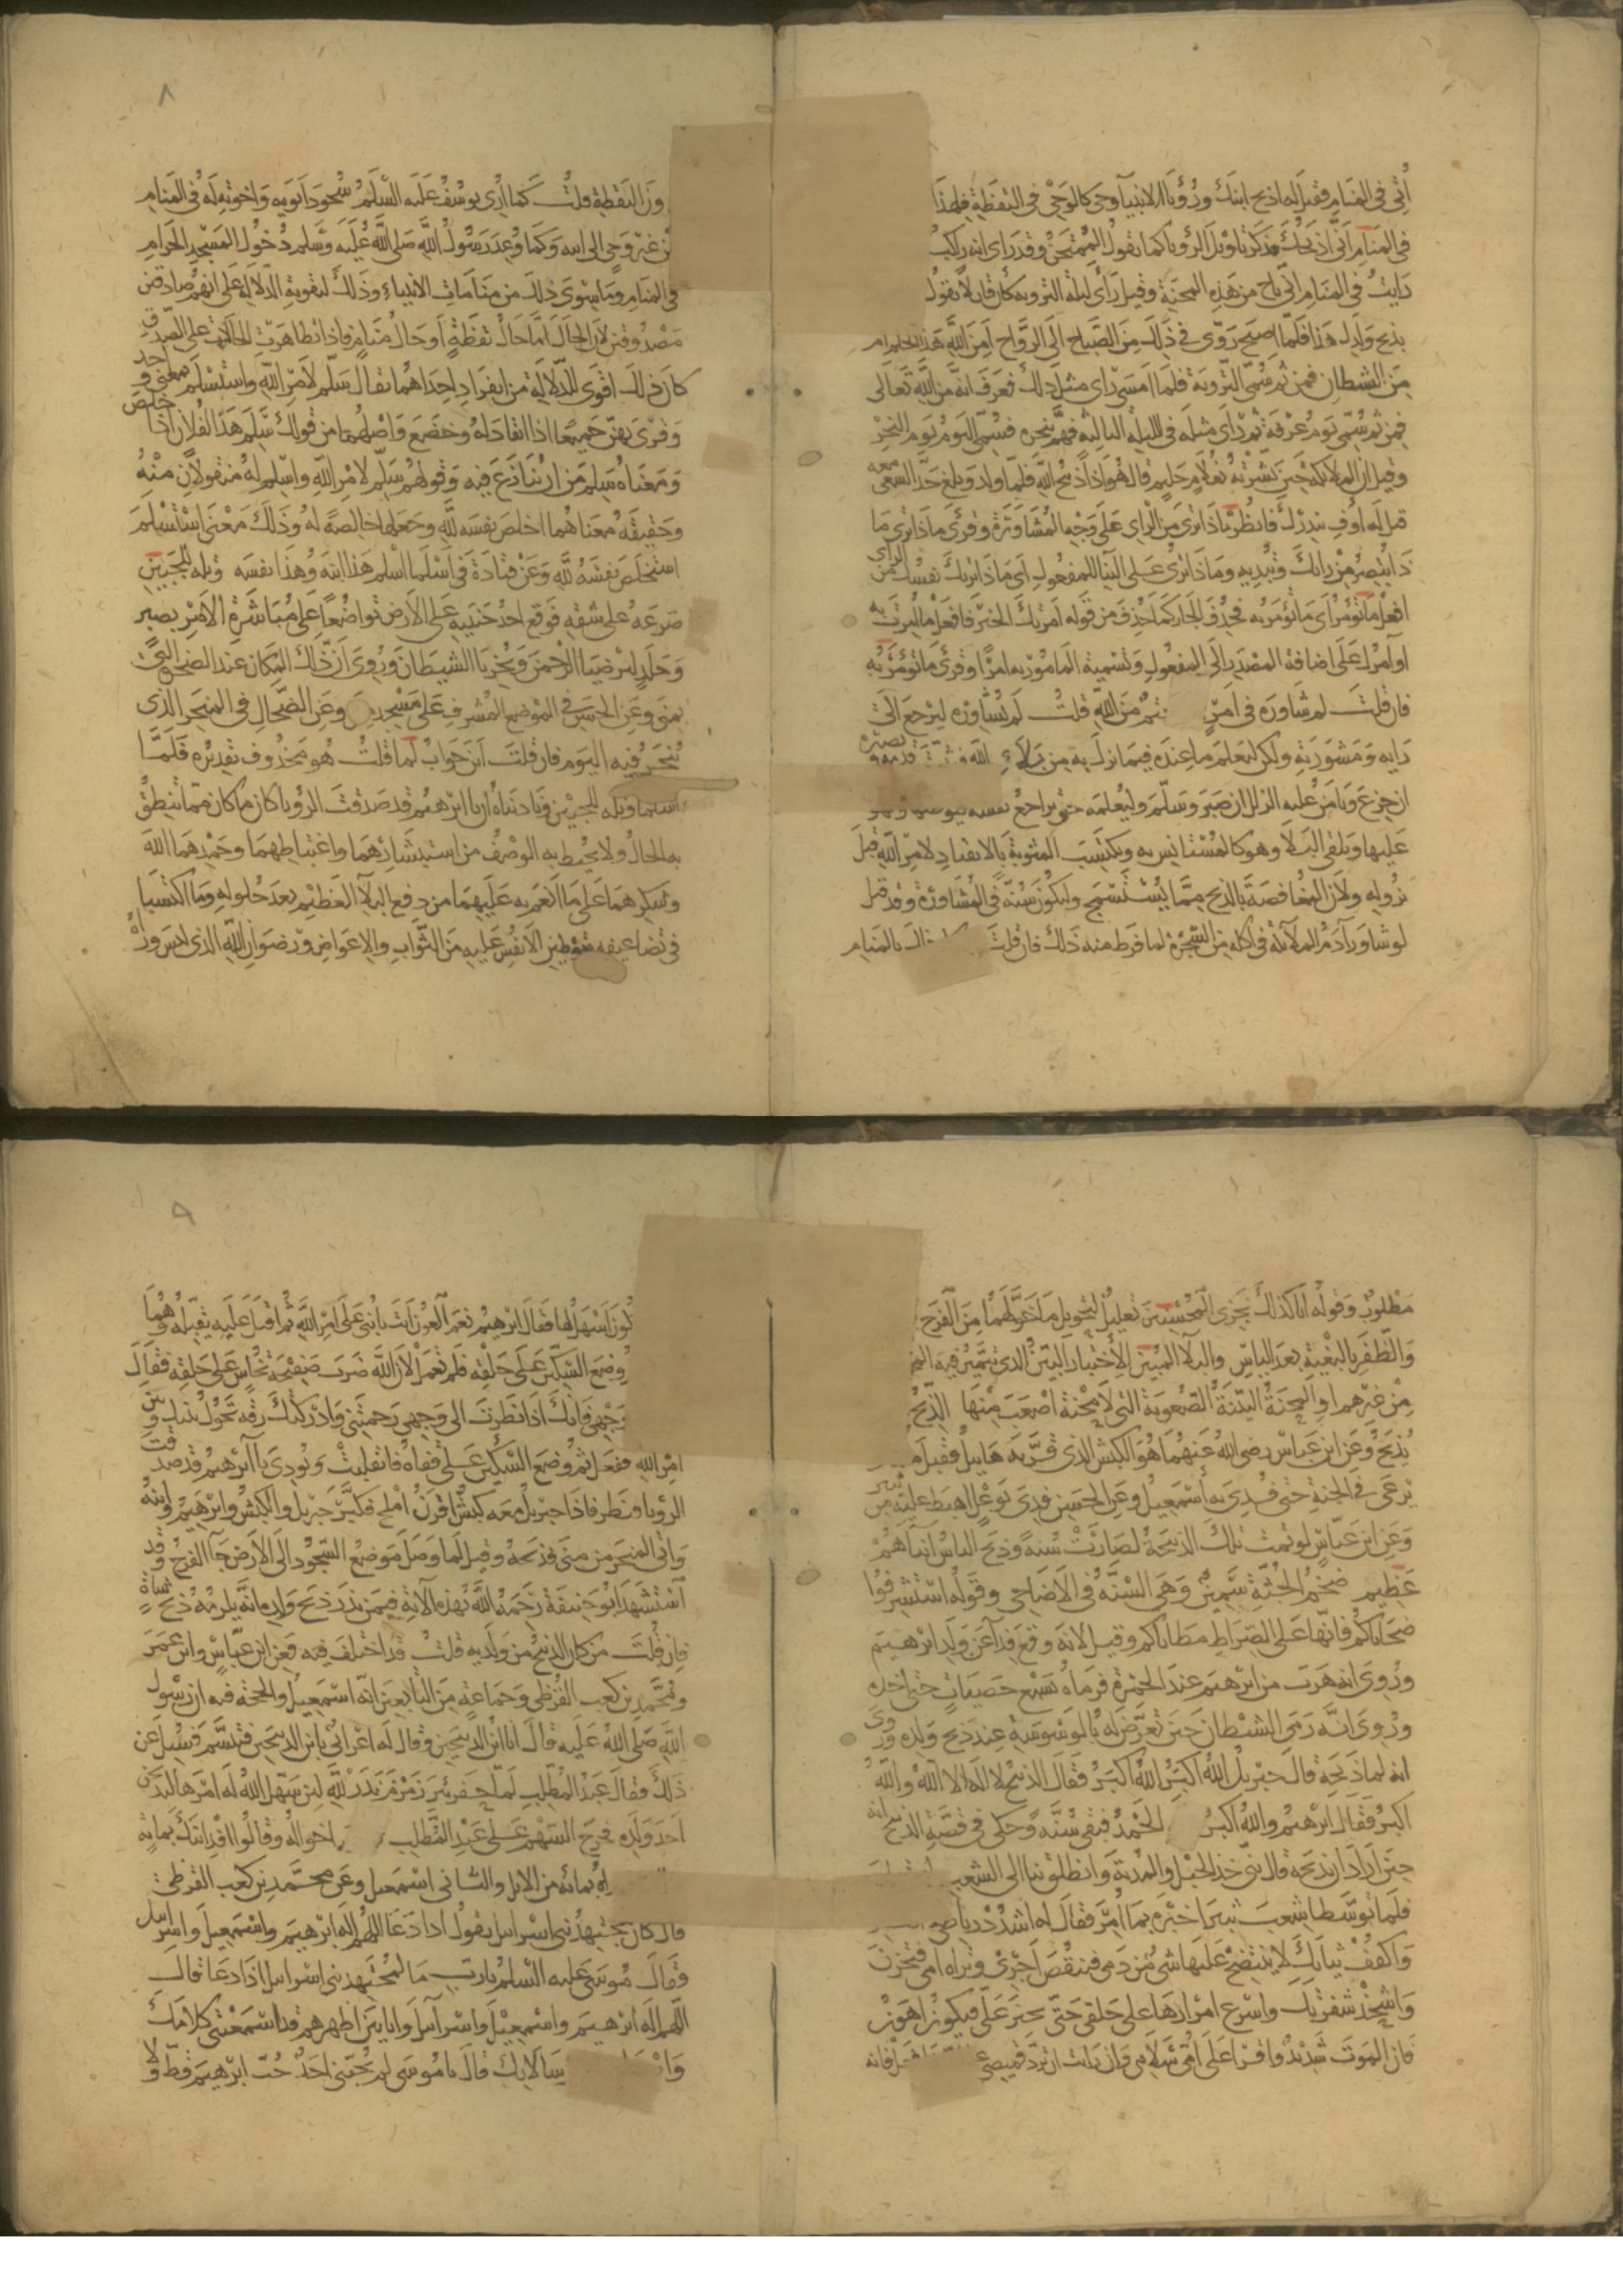 أُتِيَ في المنام فقيل له اذبح ابنك ورؤيا الانبيآ وحي كالوحي في اليقظة فلهذا
في المنام اني اذبحك فذكر تاويل الرؤيا كما يقول الممتحن وقد راى انه راكب
رايت في المنام اني ناج من هذه المحنة وقيل رأى ليلة التروية كأن قايلا يقول
بذبح ولدك هذا فلما اصبح روّى في ذلك من الصباح الى الرواح أمن الله هذا الحلم ام
من الشيطان فمن ثم سُمي التروية فلما امسى راى مثل ذلك فعرف انه من الله تعالى
فمن ثم سُمي يوم عرفة ثم رأى مثله في الليلة الثالثة فهمّ بنحره فسمي اليوم يوم النحر
وقيل ان الملائكة حين بشرته بغلام حليم قال هو اذا ذبيح الله فلما ولد وبلغ حد السعي معه
قيل له أوف بنذرك فانظر ماذا ترى من الراي على وجه المشاورة وقرئ ماذا تري
تبصر من رايك وتبديه وماذا تُرى على البنا للمفعول اى ماذا تريك نفسك من الراى
افعل ما تؤمر أي ما تؤمر به فحذف الجار كما حذف من قوله أمرتك الخير فافعل ما أُمرت به
او أمرك على اضافة المصدر الى المفعول وتسمية المامور به امرا وقرئ ما تؤمر به
فان قلت لم شاوره في امر من الله قلت لم يشاوره ليرجع الى
رايه ومشورته ولكن ليعلم ما عنده فيما نزل به من بلاء الله
ان جزع ويامن عليه الزلل ان صبر وسلّم وليعلمه حتى يراجع نفسه
عليها ويلقى البلآ وهو كالمستانس به ويكتسب المثوبة بالانقياد لامر الله قبل
نزوله ولان المغافصة بالذبح مما يُستسمج وليكون سنة في المشاورة وقد قيل
لو شاور آدم الملآئكة في أكله من الشجرة لما فرط منه ذلك فان قلت بالمنام
اليقظة قلت كما أُري يوسف عليه السلم سجود ابويه واخوته له في المنام
من غير وحي الى ابيه وكما وعد رسول الله صلى الله عليه وسلم دخول المسجد الحرام
في المنام وما سوى ذلك من منامات الانبياء وذلك لتقوية الدلالة على انهم صادقون
مصدوقون لان الحال اما حال يقظة او حال منام فاذا تظاهرت الحالتان على الصدق
كان ذلك اقوى للدلالة من انفراد احداهما يقال سلم لامر الله واستسلم بمعنى واحد
وقرئ بهن جميعا اذا انقاد له وخضع واصلها من قولك سلم هذا لفلان اذا خلص
ومعناه سلم من ان ينازع فيه وقولهم سلّم لامر الله واسلم له منقولان منه
وحقيقة معناهما اخلص نفسه لله وجعلها خالصة له وذلك معنى استسلم
استخلص نفسه لله وعن قتادة في اسلما اسلم هذا ابنه وهذا نفسه وتله للجبين
صرعه على شقه فوقع احد جنبيه على الارض تواضعا على مباشرة الامر بصبر
وجلد ليرضيا الرحمن ويخزيا الشيطان وروي ان ذلك المكان عند الصخرة التي
بمنى وعن الحسن في الموضع المشرف على مسجد وعن الضحاك في المنحر الذي
يُنحر فيه اليوم فان قلت اين جواب لما قلت هو محذوف تقديره فلما
اسلما وتله للجبين وناديناه ان يا ابرهيم قد صدقت الرؤيا كان ما كان مما تنطق
به الحال ولا يحيط به الوصف من استبشارهما واغتباطهما وحمدهما الله
وشكرهما على ما انعم به عليهما من دفع البلآ العظيم بعد حلوله وما اكتسبا
في تضاعيفه بتوطين الانفس عليه من الثواب والاعواض ورضوان الله الذي ليس وراه
مطلوب وقوله انا كذلك نجزي المحسنين تعليل لتحويل ما خولهما من الفرج
والظفر بالبغية بعد الياس والبلآ المبين الاختبار البين الذي يتميز فيه
من غيرهم او المحنة البينة الصعوبة التي لا محنة اصعب منها الذبح
يذبح وعن ابن عباس رضي الله عنهما هو الكبش الذي قربه هابيل فقبل
يرعى في الجنة حتى فُدي به اسمعيل وعن الحسن فدي بوعل اهبط عليه من ثبير
وعن ابن عباس لو تمت تلك الذبيحة لصارت سنة وذبح الناس ابنآهم
عظيم ضخم الجثة سمين وهي السنة في الاضاحي وقوله استشرفوا
ضحاياكم فانها على الصراط مطاياكم وقيل لانه وقع فدآ عن ولد ابرهيم
وروي انه هرب من ابرهيم عند الجمرة فرماه بسبع حصيات حتى اخذه
وروي انه رمى الشيطان حين تعرض له بالوسوسة عند ذبح ولده وروي
انه لما ذبحه قال جبريل الله اكبر الله اكبر فقال الذبيح لا اله الا الله والله
اكبر فقال ابرهيم والله اكبر الحمد فبقي سنة وحكى في قصة الذبيح انه
حين اراد ذبحه قال يا بني خذ الحبل والمدية وانطلق بنا الى الشعب
فلما توسطا شعب ثبير اخبره بما أُمر فقال له اشدد رباطي
واكفف ثيابك لا ينتضح عليها شي من دمي فينقص اجري وتراه امي فتحزن
واشحذ شفرتك واسرع امرارها على حلقي حتى تجيز علي فيكون اهون
فان الموت شديد واقرا على امي سلامي وان رايت ان ترد قميصي فانه
يكون اسهل لها فقال ابرهيم نعم العون انت يا بني على امر الله ثم اقبل عليه يقبله وهما
وضع السكين على حلقه فلم تعمل لان الله ضرب صفيحة نحاس على حلقه فقال
وجهي فانك اذا نظرت الى وجهي رحمتني وادركتك رقة تحول بينك وبين
امر الله ففعل ثم وضع السكين على قفاه فانقلبت ونودي يا ابرهيم قد صدقت
الرؤيا ونظر فاذا جبريل معه كبش اقرن املح فكبر جبريل والكبش وابرهيم وابنه
واتى المنحر من منى فذبحه وقيل لما وصل موضع السجود الى الارض جآ الفرج وقد
استشهد ابو حنيفة رحمه الله بهذه الآية فيمن نذر ذبح ولده انه يلزمه ذبح شاة
فان قلت من كان الذبيح من ولديه قلت قد اختلف فيه فعن ابن عباس وابن عمر
ومحمد بن كعب القرظي وجماعة من التابعين انه اسمعيل والحجة فيه ان رسول
الله صلى الله عليه قال انا ابن الذبيحين وقال له اعرابي يا ابن الذبيحين فتبسم فسيل عن
ذلك فقال عبد المطلب لما حفر بئر زمزم نذر لله لئن سهل الله له امرها ليذبحن
احد ولده فخرج السهم على عبد المطلب اخواله وقالوا افد ابنك بماية
بمائة من الابل والثاني اسمعيل وعن محمد بن كعب القرظي
قال كان مجتهد بني اسراىل يقول اذا دعا اللهم اله ابرهيم واسمعيل واسراىل
فقال موسى عليه السلم يا رب ما لمجتهد بني اسراىل اذا دعا قال
اللهم اله ابرهيم واسمعيل واسرآىل وانا بين اظهرهم قد اسمعتني كلامك
برسالاتك قال يا موسى لم يحبني احد حب ابرهيم قط ولا